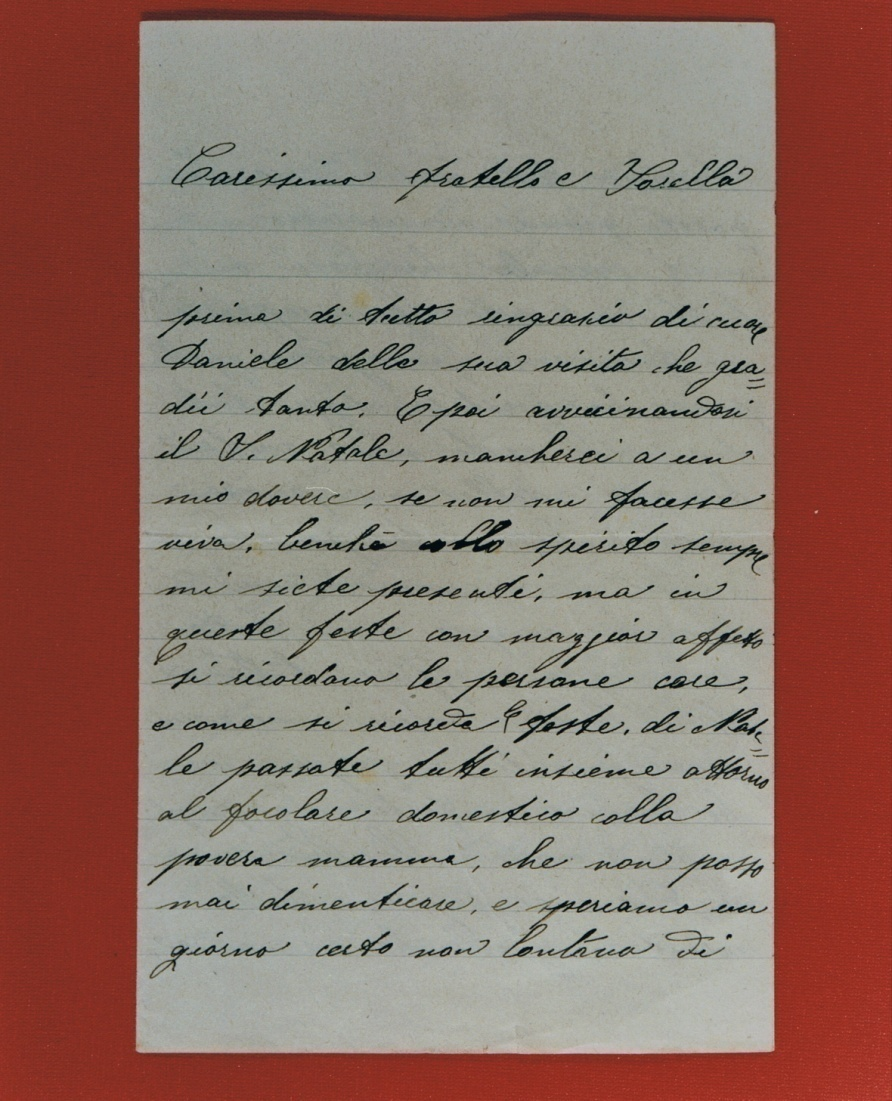 Carissimo fratello e Sorella
prima di tutto ringrazio di cuore
Daniele della sua visita che gra=
dii tanto. E poi avvicinandosi
il S. Natale, mancherei a un
mio dovere, se non mi facesse
viva, benchè collo spirito sempre
mi siete presenti, ma in
queste feste con maggior affetto
si ricordano le persone care,
e come si ricorda E feste, di Nata=
le passate tutti insieme attorno
al focolare domestico colla
povera mamma, che non posso
mai dimenticare, e speriamo un
giorno certo non lontano di